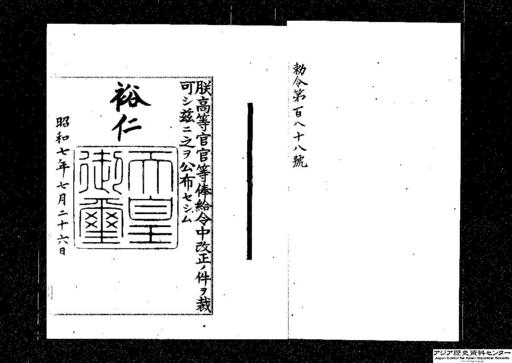 勅令第百八十八號
朕高等官官等俸給令中改正ノ件ヲ裁
可シ茲ニ之ヲ公布セシム
裕仁
天皇
御璽
昭和七年七月二十六日
アジア歴史資料センター
Japan Center for Asian Historical Records